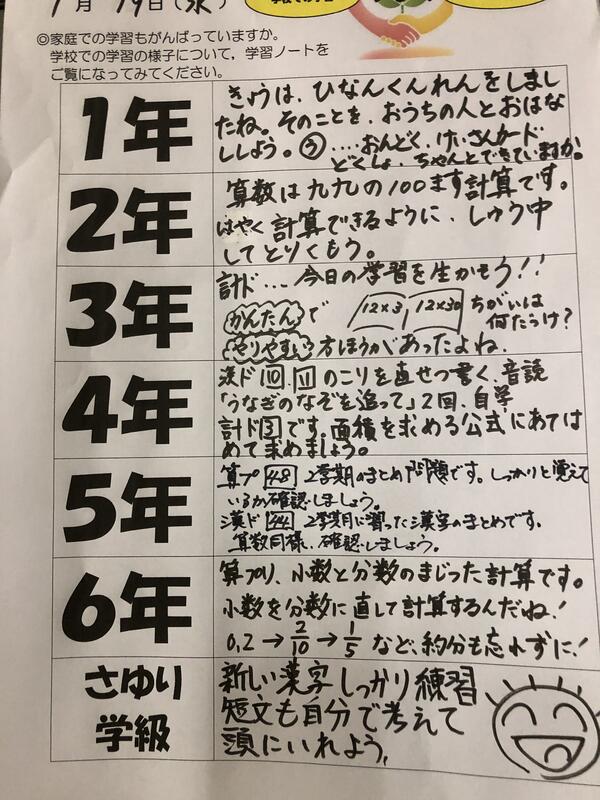 1月19日(水)
◎家庭での学習もがんばっていますか。
学校での学習の様子について，学習ノートを
ご覧になってみてください。
1年
きょうは、ひなんくんれんをしまし
たね。そのことを、おうちの人とおはな
ししよう。う....おんどく、けいさんカード
どくしょ、ちゃんとできていますか。
2年
算数は九九の100ます計算です。
はやく計算できるように、しゅう中
してとりくもう。
3年
計ド...今日の学習を生かそう!!
かんたんで 12×3, 12×30 ちがいは
何だっけ?
やりやすい方ほうがあったよね。
4年
漢ド110.111のこりを直せつ書く、音読
「うなぎのなぞを追って」2回、自学
計ド3です。面積を求める公式にあては
めて求めましょう。
5年
算プ48 2学期のまとめ問題です。しっかりと覚えて
いるか確認しましょう。
漢ド44 2学期に習った漢字のまとめです。
算数同様、確認しましょう。
6年
算プリ、小数と分数のまじった計算です。
小数を分数に直して計算するんだね!
0,2→2/10→1/5 など、約分も忘れずに!
さゆり
学級
新しい漢字しっかり練習
短文も自分で考えて
頭にいれよう。